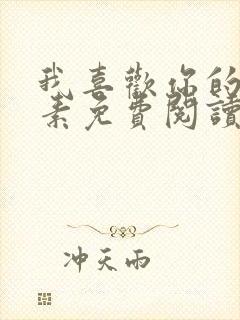 我喜歡你的
素免費閱讀
冲天雨